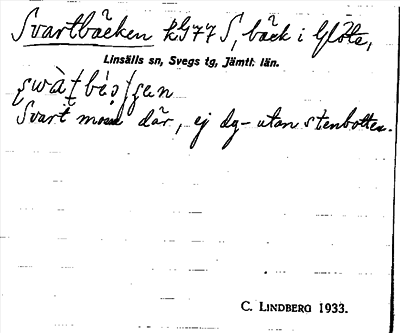 Svartbäcken kG77 S, bäck i Glöte,
Linsälls sn, Svegs tg, Jämtl: län.
Svart mosse där, ej dy- utan stenbotten.
C. LINDBERG 1933.